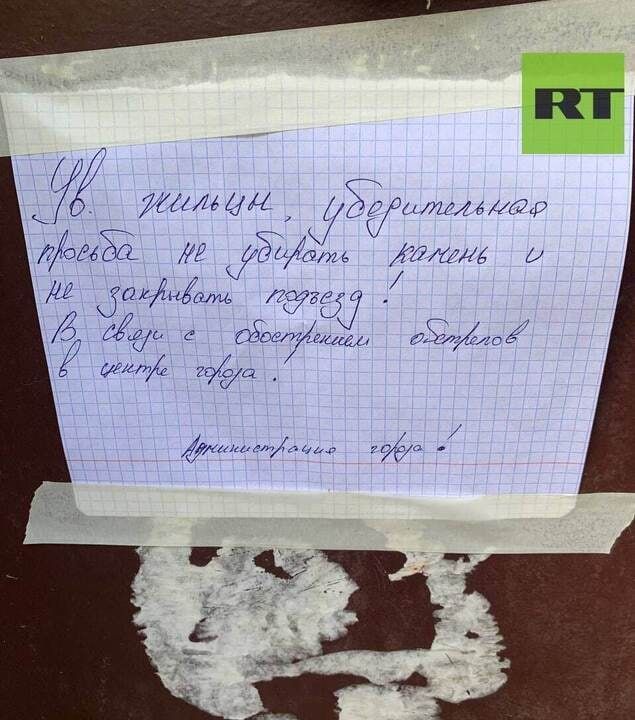 RT
Ув. жильцы, убедительная
просьба не убирать камень и
не закрывать подъезд!
В связи с обострением обстрелов
в центре города.
Администрация города!